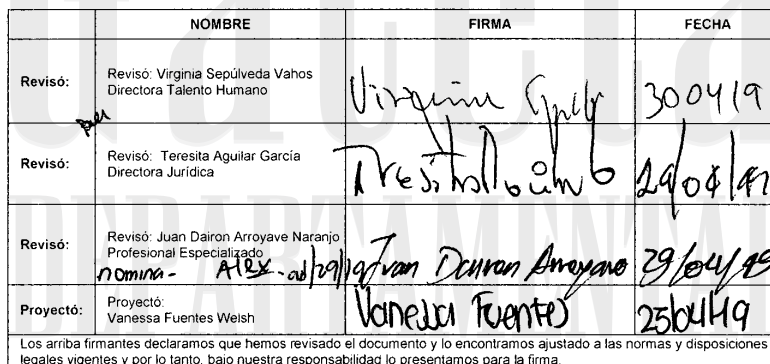 NOMBRE FIRMA FECHA
Revisó: Revisó: Virginia Sepúlveda Vahos
Directora Talento Humano Virginia 300419
Revisó: Revisó: Teresita Aguilar García
Directora Jurídica 29/04/
Revisó: Revisó: Juan Dairon Arroyave Naranjo
Profesional Especializado
nomina- Juan Dairon Arroyave 29/04/19
Proyectó: Proyectó:
Vanessa Fuentes Welsh Vanessa Fuentes 25/04/19
Los arriba firmantes declaramos que hemos revisado el documento y lo encontramos ajustado a las normas y disposiciones
legales vigentes y por lo tanto, bajo nuestra responsabilidad lo presentamos para la firma.